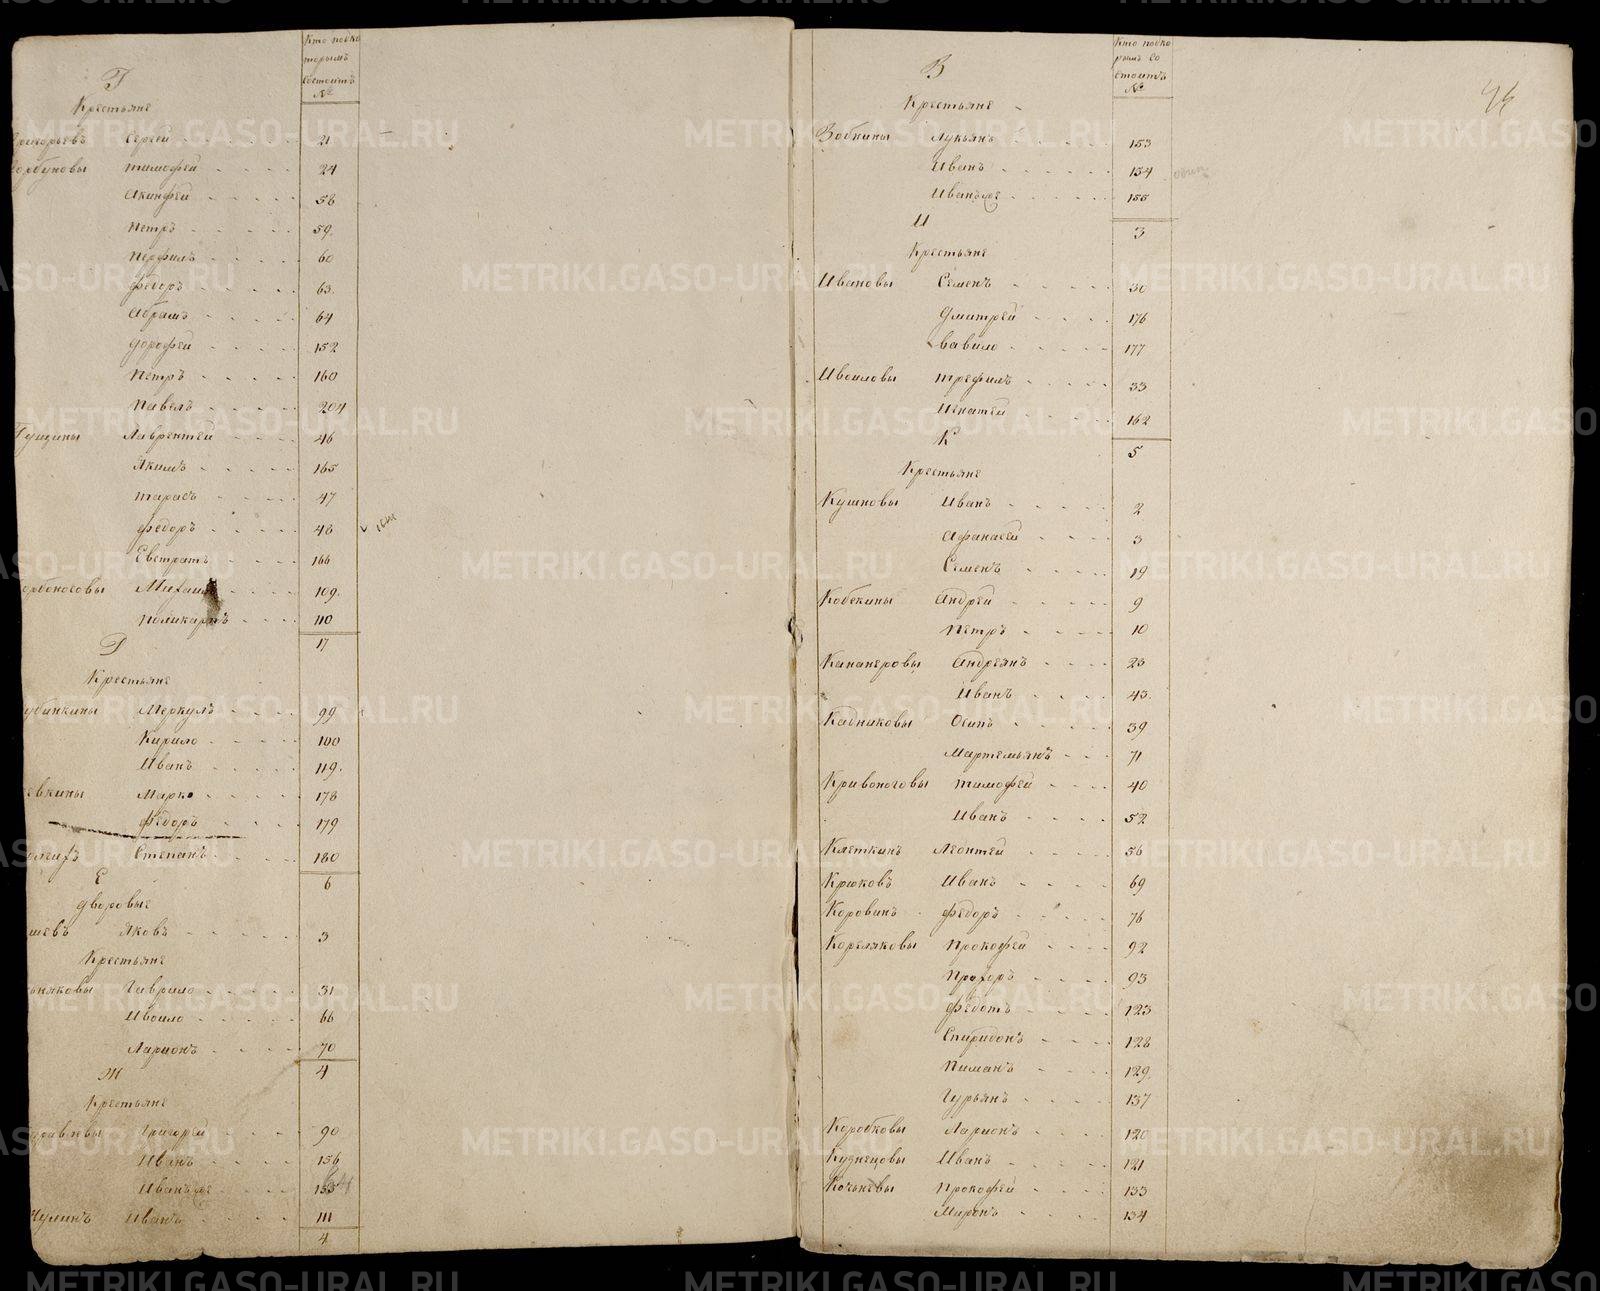 Кто подко
торымъ
состоитъ
№
Г
Крестьяне
Григорьевъ Сергей 21
Горбуновы Тимофей 24
Акинфей 58
Петръ 59
Перфилъ 60
Федоръ 63
Абрамъ 64
Дорофей 152
Петръ 160
Павелъ 204
Гущины Лаврентей 46
Якимъ 165
Тарасъ 47
Федоръ 48
Евстратъ 166
орбоносовы Михаила 109
Поликарпъ 110
17
Д
Крестьяне
убинкины Меркулъ 99
Кирило 100
Иванъ 119
евкины Марко 178
Федоръ 179
Степанъ 180
6
Е
Дворовые
шевъ Яковъ 3
Крестьяне
Гаврило 31
Ивоило 66
Ларионъ 70
4
Ж
Крестьяне
уравлевы Григорей 90
Иванъ 156
Иванъ же
Жулинъ Иванъ 111
4
Кто подко
рымъ со
стоитъ
№
З
Крестьяне
Зобнины Лукьянъ 153
Иванъ 154
Иванъ же 155
3
И
Крестьяне
Ивановы Семенъ 30
Дмитрей 176
Вавило 177
Ивоиловы Трефилъ 33
Игнатей 162
5
К
Крестьяне
Кушновы Иванъ 2
Афанасей 3
Семенъ 19
Кобекины Андрей 9
Петръ 10
Капанеровы Андреянъ 23
Иванъ 43
Кадниковы Осипъ 39
Мартемьянъ 71
Кривоноговы Тимофей 40
Иванъ 52
Клеткинъ Леонтей 56
Крюковъ Иванъ 69
Коровинъ Федоръ 76
Кореляковы Прокофей 92
Прохоръ 93
Федотъ 123
Спиридонъ 128
Пиманъ 129
Гурьянъ 137
Коробковы Ларионъ 120
Кузнецовы Иванъ 121
Кочневы Прокофей 133
Миронъ 134
METRIKI.GASO-URAL.RU